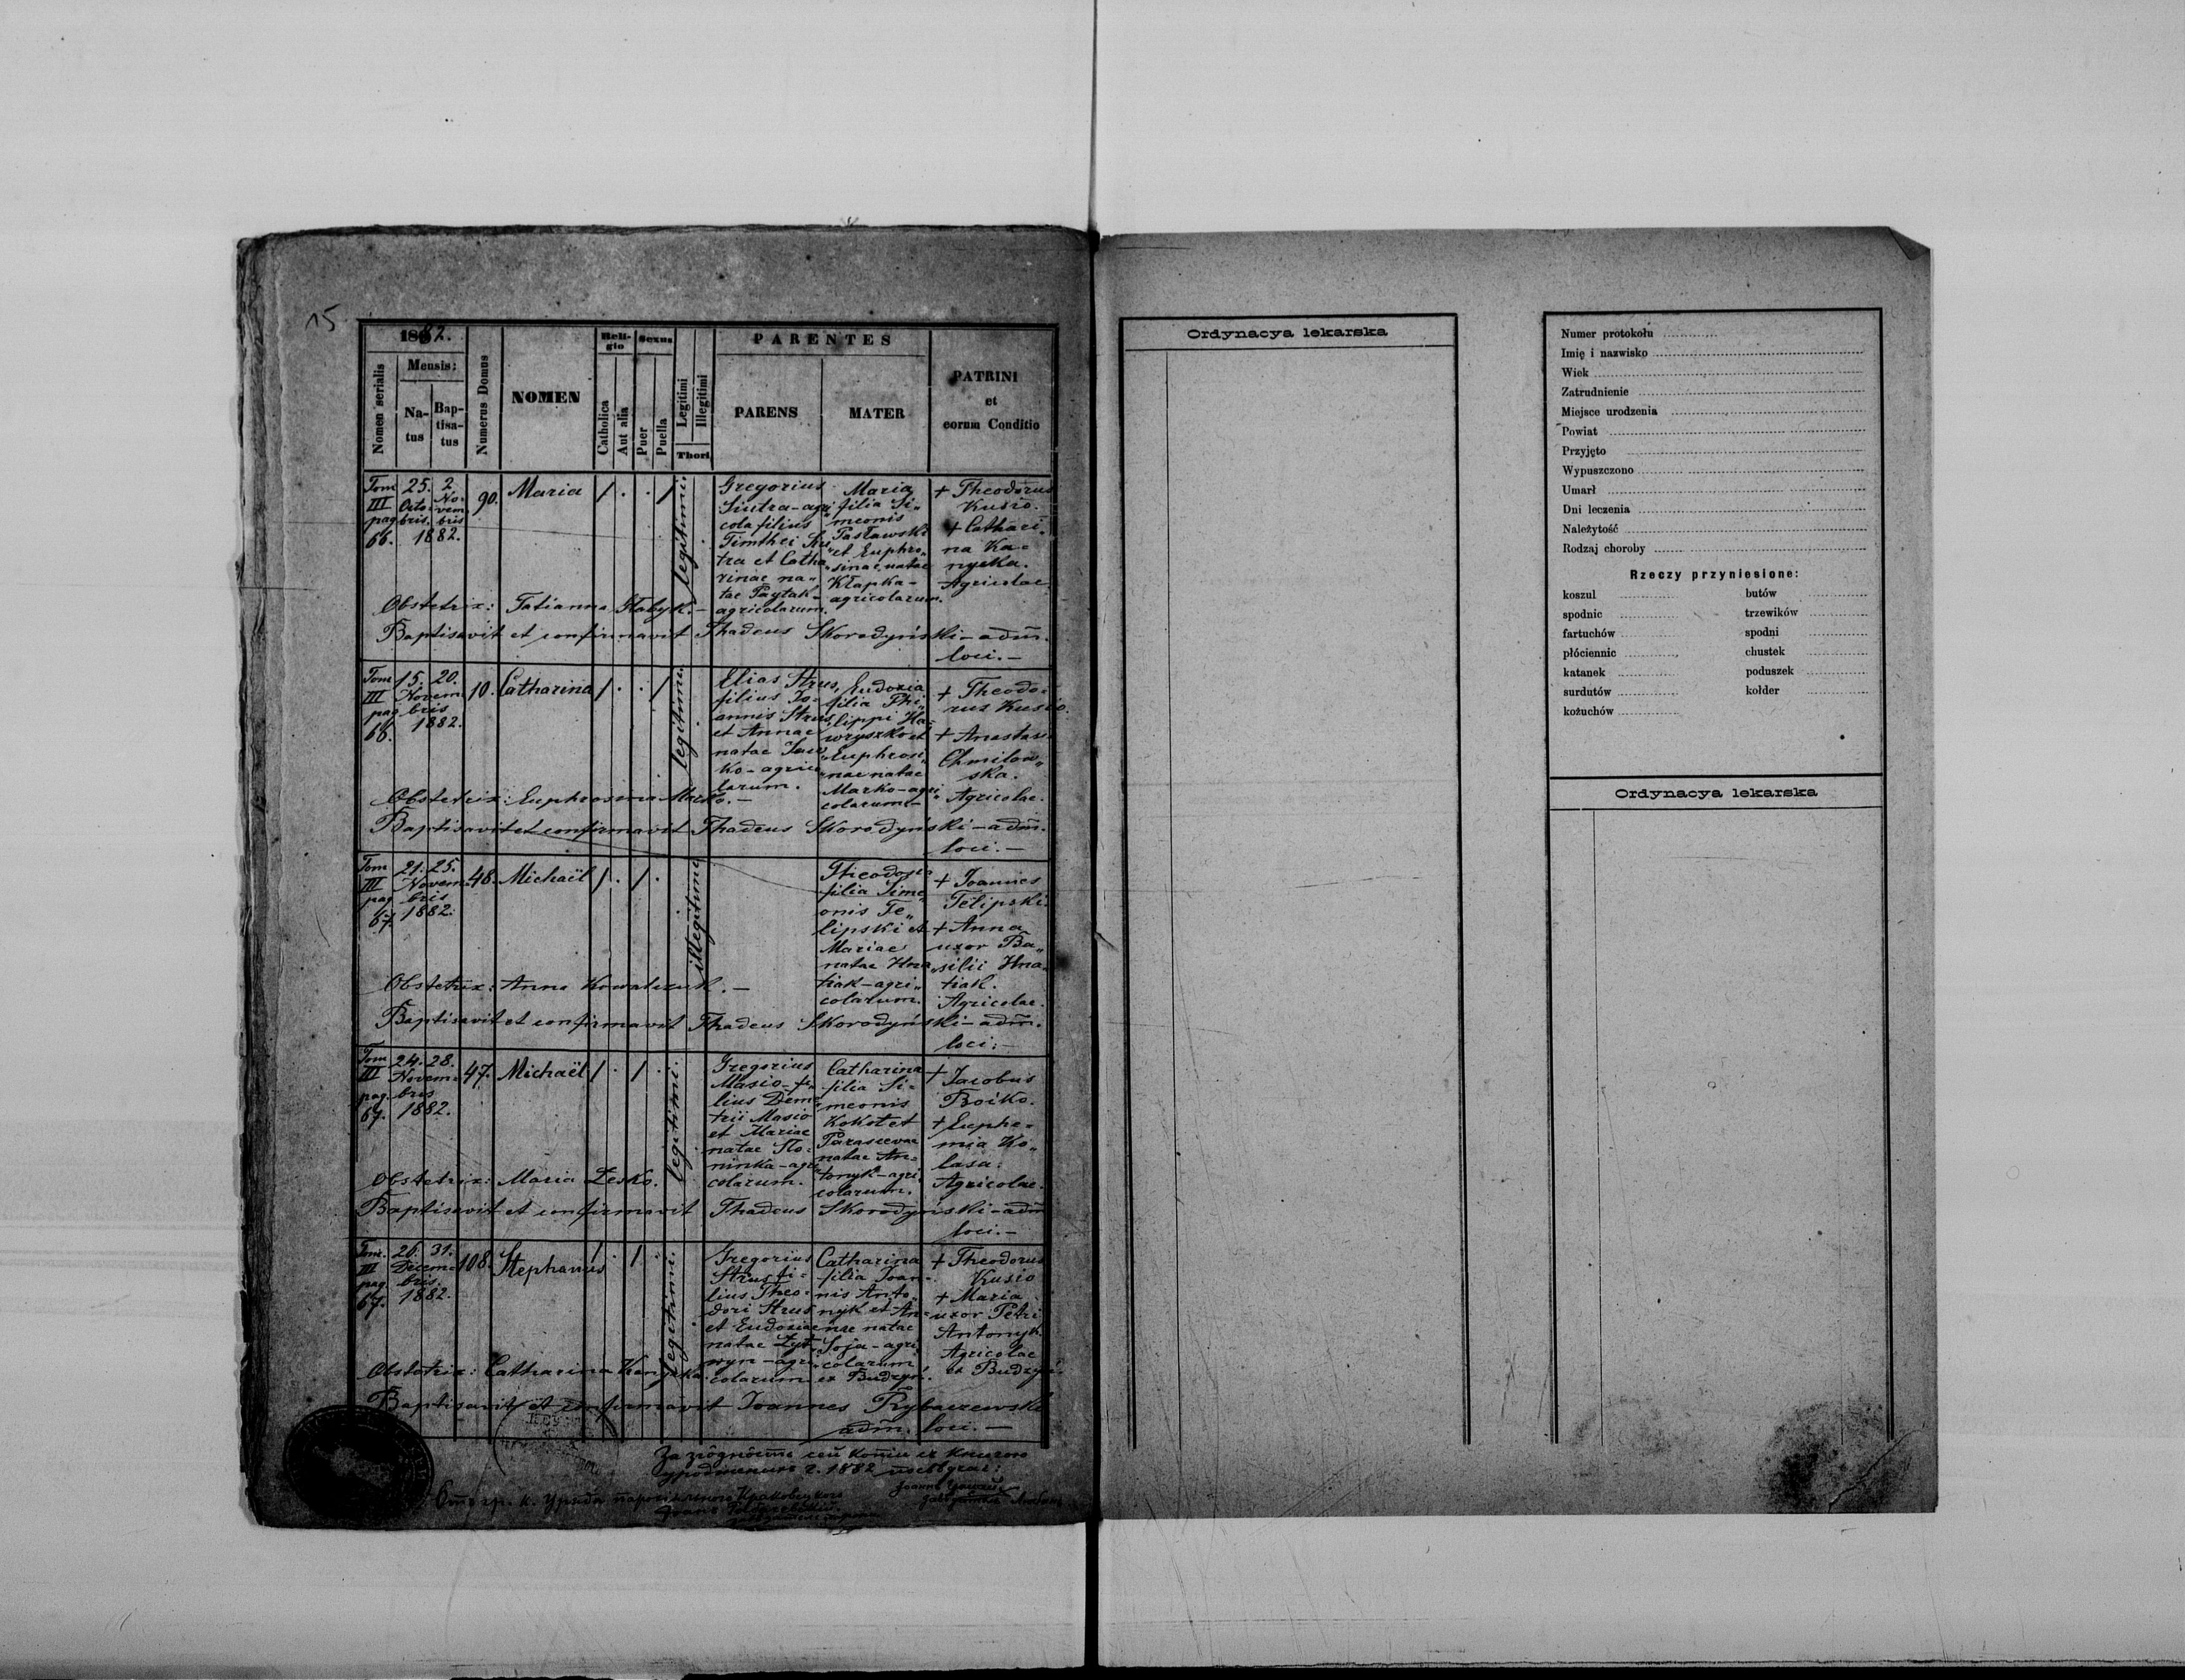 15
1882.
Nomen serialis
Mensis:
Na-
tus
Bap-
tisa-
tus
Numerus Domus
NOMEN
Reli-
gio
Catholica
Aut alia
Sexus
Puer
Puella
Legitimi
Illegitimi
Thori
PARENTES
PARENS
MATER
PATRINI
et
eorum Conditio
Tom
III
pag.
66.
25. 2
Octo- No-
bris. vem-
bris
1882.
90.
Maria
1 . . 1
legitimi.
Gregorius
Siutra - agri-
cola filius
Timthei Siu
tra et Catha
rinae na„
tae Paytak -
agricolarum.
Maria
filia Si-
meonis
Pasławski
et Euphro„
sinae natae
Kłapka -
agricolarum.
+ Theodorus
Kusio.
+ Cathari-
na Ka-
nycka.
Agricolae
Obstetrix: Tatianna Stabyk. -
Baptisavit et confirmavit Thadeus Skorodyński - adm.
loci. -
Tom
III
pag
66.
15. 20.
Novem
bris
1882.
10.
Catharina
1 . . 1
legitimi.
Elias Strus,
filius Jo-
annis Strus
et Annae
natae
ko - agrico
larum.
Eudoxia
filia Phi„
lippi Ha-
wryszko et
Euphrosi„
nae natae
Marko - agri„
colarum -
+ Theodo-
rus Kusio.
+ Anastasia
Chmilow„
ska.
Agricolae.
Obstetrix: Euphrosina Marko. -
Baptisavit et confirmavit Thadeus Skorodyński - adm.
loci. -
Tom
III
pag
67.
21. 25.
Novem-
bris
1882.
48.
Michaël
1 . 1 .
illegitimi
Theodosia
filia Sime„
onis Te„
lipski et
Mariae
natae Hna
tiak - agri„
colarum.
+ Joannes
Telipski.
+ Anna
uxor Ba„
silii Hna-
tiak.
Agricolae.
Obstetrix: Anna Kowalczuk. -
Baptisavit et confirmavit Thadeus Skorodyński - adm.
loci: -
Tom
III
pag.
67.
24. 28.
Novem-
bris
1882.
47.
Michaël
1 . 1 .
legitimi.
Gregorius
Masio - fi„
lius Deme
trii Masio
et Mariae
natae Sło-
ninka - agri
colarum.
Catharina
filia Si-
meonis
Kokot et
Parascevae
natae An-
tonyk - agri
colarum.
+ Jacobus
Boiko.
+ Euphe-
mia Ko„
lasa:
Agricolae.
Obstetrix: Maria Lesko.
Baptisavit et confirmavit Thadeus Skorodyński - adm
loci. -
Tom.
III
pag.
67.
26. 31.
Decem-
bris.
1882.
108.
Stephanus
1 . 1 .
legitimi.
Gregorius
Strus fi-
lius Theo-
dori Strus
et Eudoxiae
natae Zyt
nyn - agri„
colarum
Catharina
filia Joan-
nis Anto„
nyk et An-
nae natae
Soja - agri
colarum
ex Budzyń.
+ Theodorus
Kusio
+ Maria
uxor Petri
Antonyk.
Agricolae
ex Budzyń.
Obstetrix: Catharina
Baptisavit et confirmavit Joannes Rybaczewski
adm. loci. -
1882
Ordynacya lekarska
Numer protokołu
Imię i nazwisko
Wiek
Zatrudnienie
Miejsce urodzenia
Powiat
Przyjęto
Wypuszczono
Umarł
Dni leczenia
Należytość
Rodzaj choroby
Rzeczy przyniesione:
koszul butów
spodnic trzewików
fartuchów spodni
płóciennic chustek
katanek poduszek
surdutów kołder
kożuchów
Ordynacya lekarska